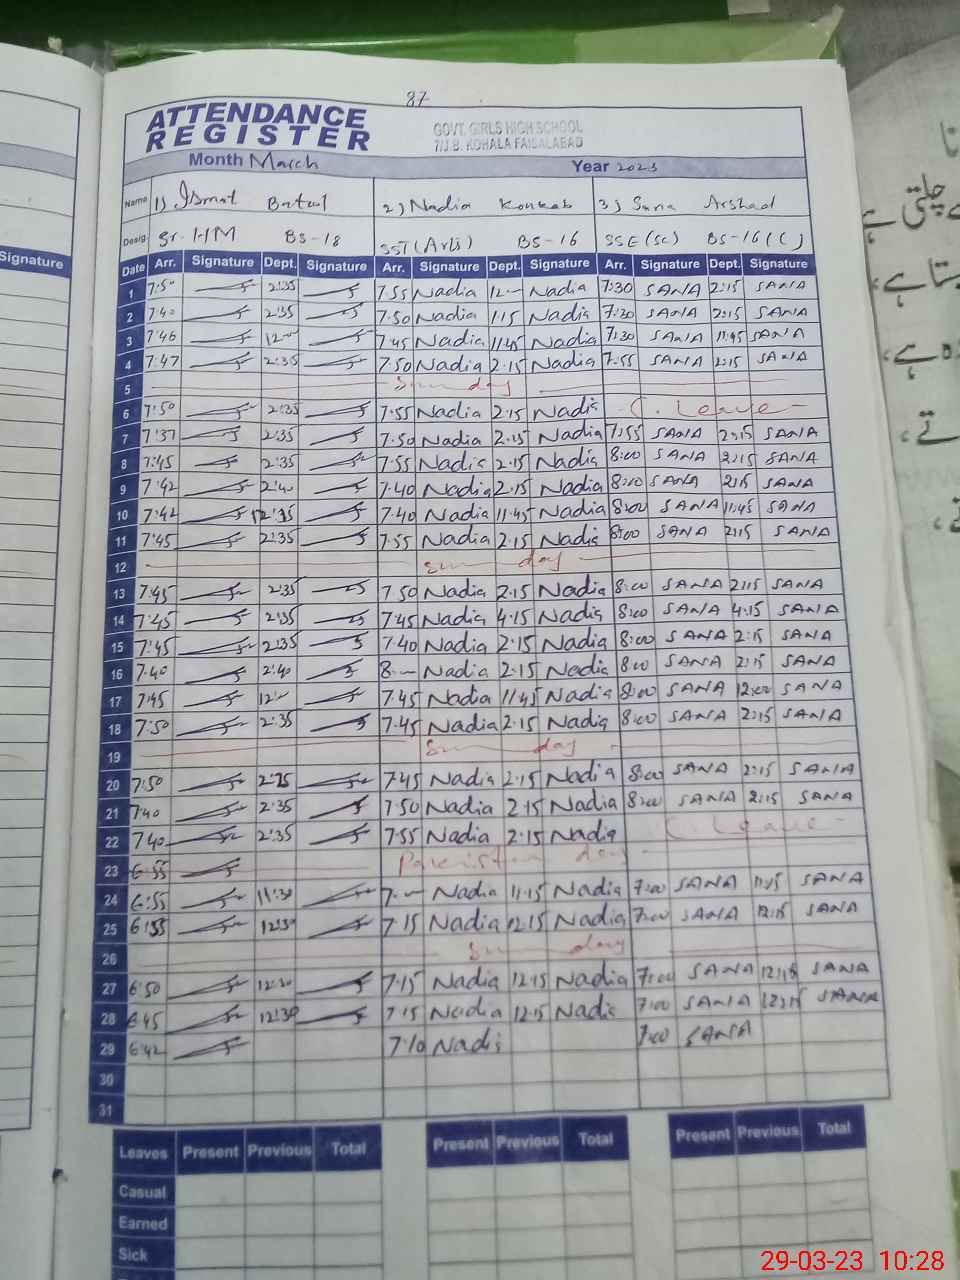 87
ATTENDANCE
REGISTER
GOVT. GIRLS HIGH SCHOOL
7/J.B. KOHALA FAISALABAD
Month March Year 2023
Name 1) Ismat Batul 2) Nadia Konkab 3) Sana Arshad
Desig Sr. HM BS-18 SST (Arts) BS-16 SSE (Sc) BS-16 (C)
Signature
Date Arr. Signature Dept. Signature Arr. Signature Dept. Signature Arr. Signature Dept. Signature
1 7:50 2:35 7.55 Nadia 12— Nadia 7:30 SANA 2:15 SANA
2 7:40 2:35 7.50 Nadia 1:15 Nadia 7:30 SANA 2:15 SANA
3 7:46 12— 7.45 Nadia 11.45 Nadia 7:30 SANA 11:45 SANA
4 7:47 2:35 7.50 Nadia 2.15 Nadia 7:55 SANA 2:15 SANA
5 Sunday
6 7:50 2:35 7.55 Nadia 2.15 Nadia C. Leave
7 7:37 2:35 7.50 Nadia 2.15 Nadia 7:55 SANA 2:15 SANA
8 7:45 2:35 7.55 Nadia 2.15 Nadia 8:00 SANA 2:15 SANA
9 7:42 2:40 7.40 Nadia 2.15 Nadia 8:00 SANA 2:15 SANA
10 7:42 12:35 7.40 Nadia 11.45 Nadia 8:00 SANA 11:45 SANA
11 7:45 2:35 7.55 Nadia 2.15 Nadia 8:00 SANA 2:15 SANA
12 Sunday
13 7:45 2:35 7.50 Nadia 2.15 Nadia 8:00 SANA 2:15 SANA
14 7:45 2:35 7.45 Nadia 4.15 Nadia 8:00 SANA 4:15 SANA
15 7:45 2:35 7.40 Nadia 2.15 Nadia 8:00 SANA 2:15 SANA
16 7:40 2:40 8.— Nadia 2.15 Nadia 8:00 SANA 2:15 SANA
17 7:45 12— 7.45 Nadia 11.45 Nadia 8:00 SANA 12:00 SANA
18 7:50 2:35 7.45 Nadia 2.15 Nadia 8:00 SANA 2:15 SANA
19 Sunday
20 7:50 2:35 7.45 Nadia 2.15 Nadia 8:00 SANA 2:15 SANA
21 7:40 2:35 7.50 Nadia 2.15 Nadia 8:00 SANA 2:15 SANA
22 7:40 2:35 7.55 Nadia 2.15 Nadia C. Leave
23 6:55 Pakistan day
24 6:55 11:30 7.— Nadia 11.15 Nadia 7:00 SANA 11:15 SANA
25 6:55 12:30 7.15 Nadia 12.15 Nadia 7:00 SANA 12:15 SANA
26 Sunday
27 6:50 12:30 7.15 Nadia 12.15 Nadia 7:00 SANA 12:15 SANA
28 6:45 12:30 7.15 Nadia 12.15 Nadia 7:00 SANA 12:15 SANA
29 6:42 7.10 Nadia 7:00 SANA
30
31
Leaves Present Previous Total Present Previous Total Present Previous Total
Casual
Earned
Sick
29-03-23 10:28